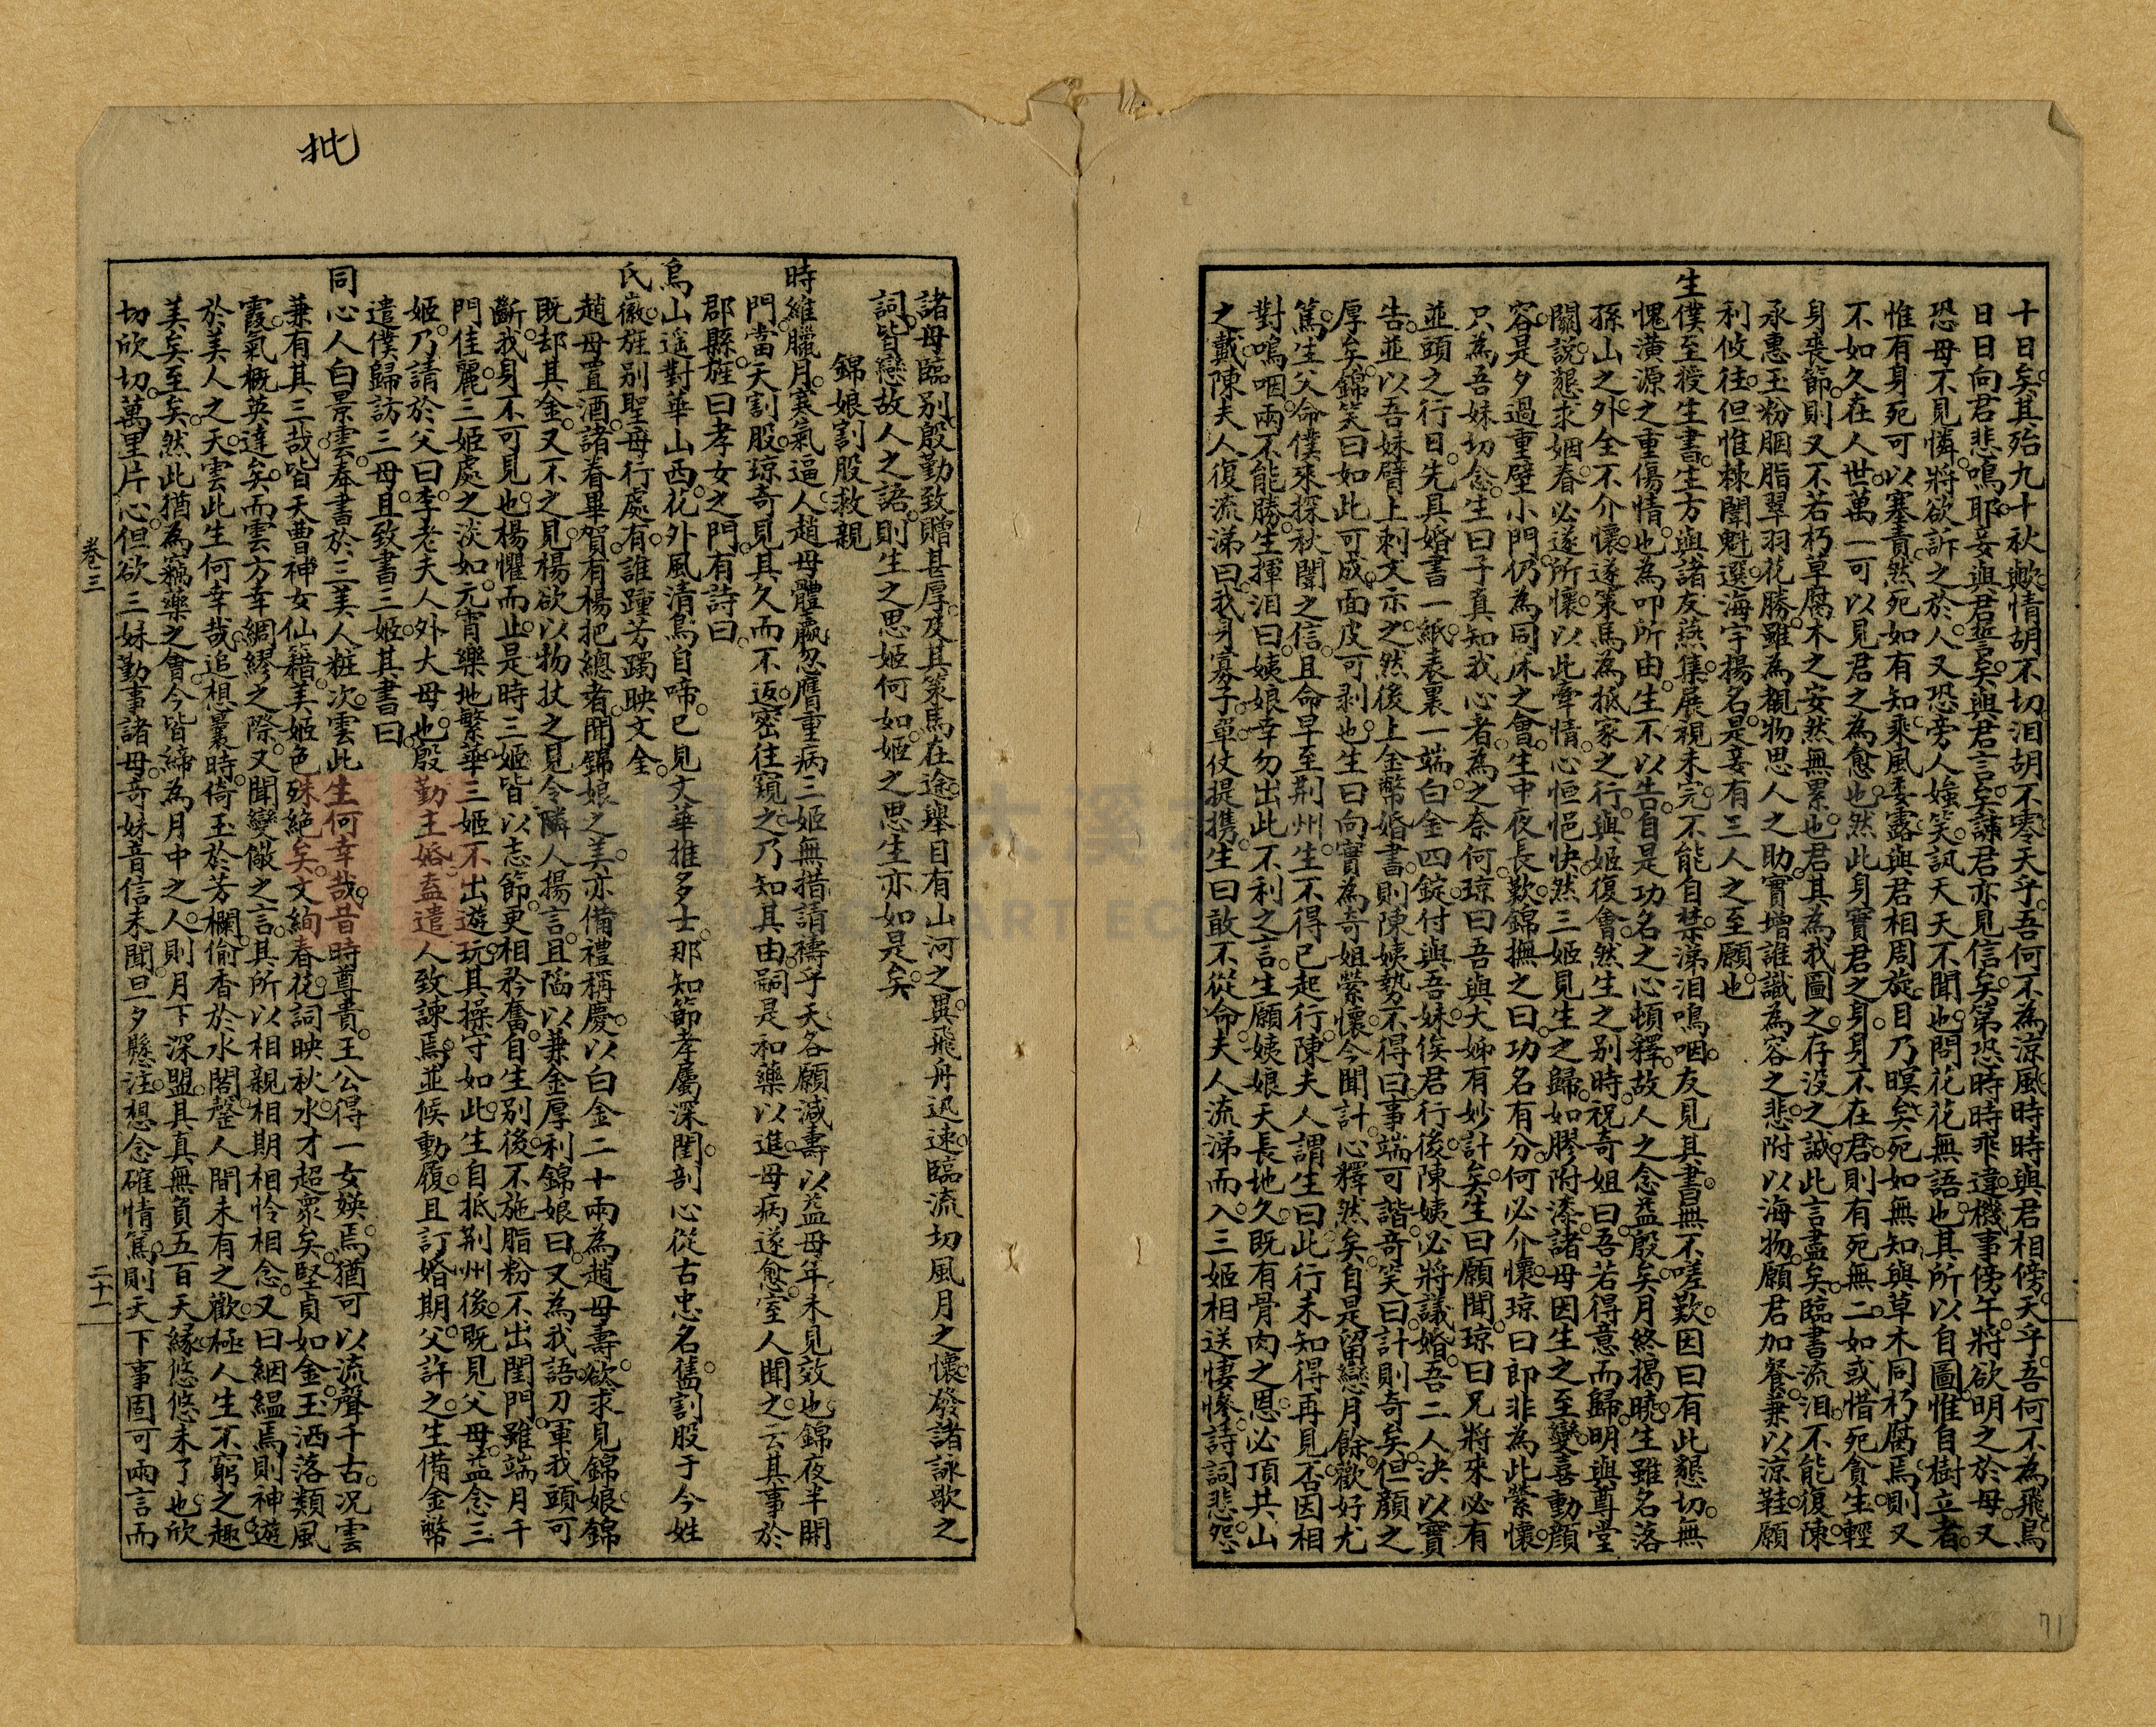 十日矣其殆九十秋歟情胡不切泪胡不零天乎吾何不為涼風時時與君相傍天乎吾何不為飛鳥
日日向君悲鳴耶妾與君誓矣與君言矣諒君亦見信矣第恐時時乖違機事傍午將欲明之於母又
恐母不見憐將欲訴之於人又恐旁人嗤笑訊天天不聞也問花花無語也其所以自圖惟自樹立者
惟有身死可以塞責然死如有知乘風委露與君相周旋目乃瞑矣死如無知與草木同朽腐焉則又
不如久在人世萬一可以見君之為愈也然此身實君之身身不在君則有死無二如或惜死貪生輕
身喪節則又不若朽草腐木之安然無累也君其為我圖之存没之誠此言盡矣臨書流泪不能復陳
承惠玉粉胭脂翠羽花勝雖為覩物思人之助實增誰識為容之悲附以海物願君加餐兼以涼鞋願
利攸往但惟棘闈魁選海宇揚名是妾有三人之至願也
生僕至授生書生方與諸友燕集展視未完不能自禁涕泪嗚咽友見其書無不嗟歎因曰有此懇切無
愧潢源之重傷情也為叩所由生不以告自是功名之心頓釋故人之念益殷矣月終揭曉生雖名落
孫山之外全不介懷遂策馬為抵家之行與姬復會然生之別時祝奇姐曰吾若得意而歸明與尊堂
關說懇求姻眷必遂所懷以此牽情心恒悒怏然三姬見生之歸如膠附漆諸母因生之至變喜動顔
容是夕過重壁小門仍為同床之會生中夜長歎錦撫之曰功名有分何必介懷瓊曰即非為此縈懷
只為吾妹切念生曰子真知我心者為之奈何瓊曰吾與大姊有妙計矣生曰願聞瓊曰兄將來必有
並頭之行日先具婚書一紙表裏一端白金四錠付與吾妹俟君行後陳姨必將議婚吾二人決以實
告並以吾妹臂上刺文示之然後上金幣婚書則陳姨勢不得曰事端可諧奇笑曰計則奇矣但顔之
厚矣錦笑曰如此可成面皮可剥也生曰向實為奇姐縈懷今聞計心釋然矣自是留戀月餘歡好尤
篤生父命僕來探秋闈之信且命早至荆州生不得已起行陳夫人謂生曰此行未知得再見否因相
對嗚咽兩不能勝生揮泪曰姨娘幸勿出此不利之言生願姨娘天長地久既有骨肉之恩必頂其山
之戴陳夫人復流涕曰我身寡子單仗提携生曰敢不從命夫人流涕而入三姬相送悽慘詩詞悲怨
諸母臨别殷勤致贈甚厚及其策馬在途舉目有山河之異飛舟迅速臨流切風月之懷發諸詠歌之
詞皆戀故人之語則生之思姬何如姬之思生亦如是矣
錦娘割股救親
時維臘月寒氣逼人趙母體羸忽膺重病三姬無措請禱乎天各願減壽以益母年未見效也錦夜半開
門當天割股瓊奇見其久而不返密往窺之乃知其由嗣是和藥以進母病遂愈室人聞之云其事於
郡縣旌曰孝女之門有詩曰
烏山遥對華山西花外風清鳥自啼已見文華推多士那知節孝屬深閨剖心從古忠名舊割股于今姓
氏徽旌别聖母行處有誰踵芳躅映文奎
趙母置酒諸眷畢賀有楊把總者聞錦娘之美亦備禮稱慶以白金二十兩為趙母壽欲求見錦娘錦
既却其金又不之見楊欲以物技之見令隣人揚言且陷以兼金厚利錦娘曰又為我語刀軍我頭可
斷我身不可見也楊懼而止是時三姬皆以志節更相矜奮自生别後不施脂粉不出閨門雖端月千
門佳麗三姬處之淡如元宵樂地繁華三姬不出遊玩其操守如此生自抵荆州後既見父母益念三
姬乃請於父曰李老夫人外大母也殷勤主婚盍遣人致諫焉並候動履且訂婚期父許之生備金幣
遣僕歸訪三母且致書三姬其書曰
同心人白景雲奉書於三美人粧次雲此生何幸哉昔時尊貴王公得一女媖焉猶可以流聲千古况雲
兼有其三哉皆天曹神女仙籍美姬色殊絶矣文絢春花詞映秋水才超衆矣堅貞如金玉洒落類風
霞氣概英達矣而雲方幸綢繆之際又聞變儆之言其所以相親相期相怜相念又曰絪縕焉則神遊
於美人之天雲此生何幸哉追想曩時倚玉於芳欄偷香於水閣罄人間未有之歡極人生不窮之趣
美矣至矣然此猶為竊藥之會今皆締為月中之人則月下深盟其真無負五百天緣悠悠未了也欣
切欣切萬里片心但欲三妹勤事諸母奇妹音信未聞旦夕懸注想念確情篤則天下事固可兩言而
卷三
二十一
批
71